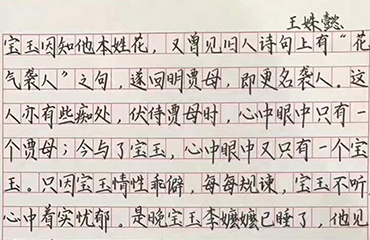 王姝懿
宝玉因知他本姓花，又曾见旧人诗句上有“花
气袭人”之句，遂回明贾母，即更名袭人。这
人亦有些痴处，伏侍贾母时，心中眼中只有一
个贾母；今与了宝玉，心中眼中又只有一个宝
玉。只因宝玉情性乖僻，每每规谏，宝玉不听，
心中着实忧郁。是晚宝玉李嬷嬷已睡了，他见